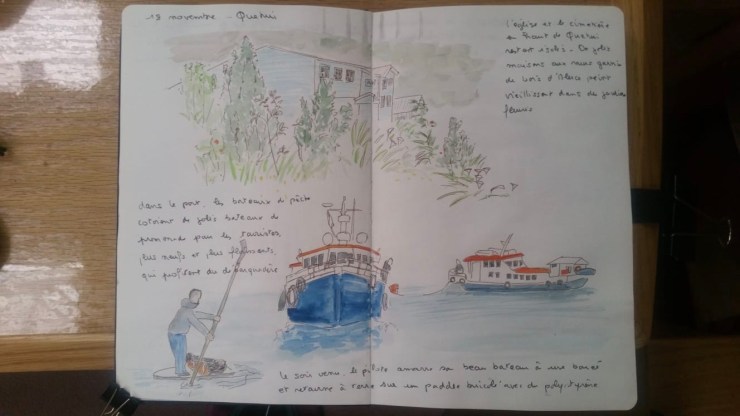 13 novembre - Quemchi
l'église et le cimetière
en haut de Quemchi
restent isolés. De jolies
maisons aux murs garnis
de bois d'alerce peint
vieillissent dans des jardins
fleuris
dans le port, les bateaux de pêche
cotoient de jolis bateaux de
promenade pour les touristes,
les oeufs et les flamants,
qui profitent du
le soir venu, le pilote amarre son beau bateau à une bouée
et retourne à terre sur un paddle bricolé avec du polystyrène